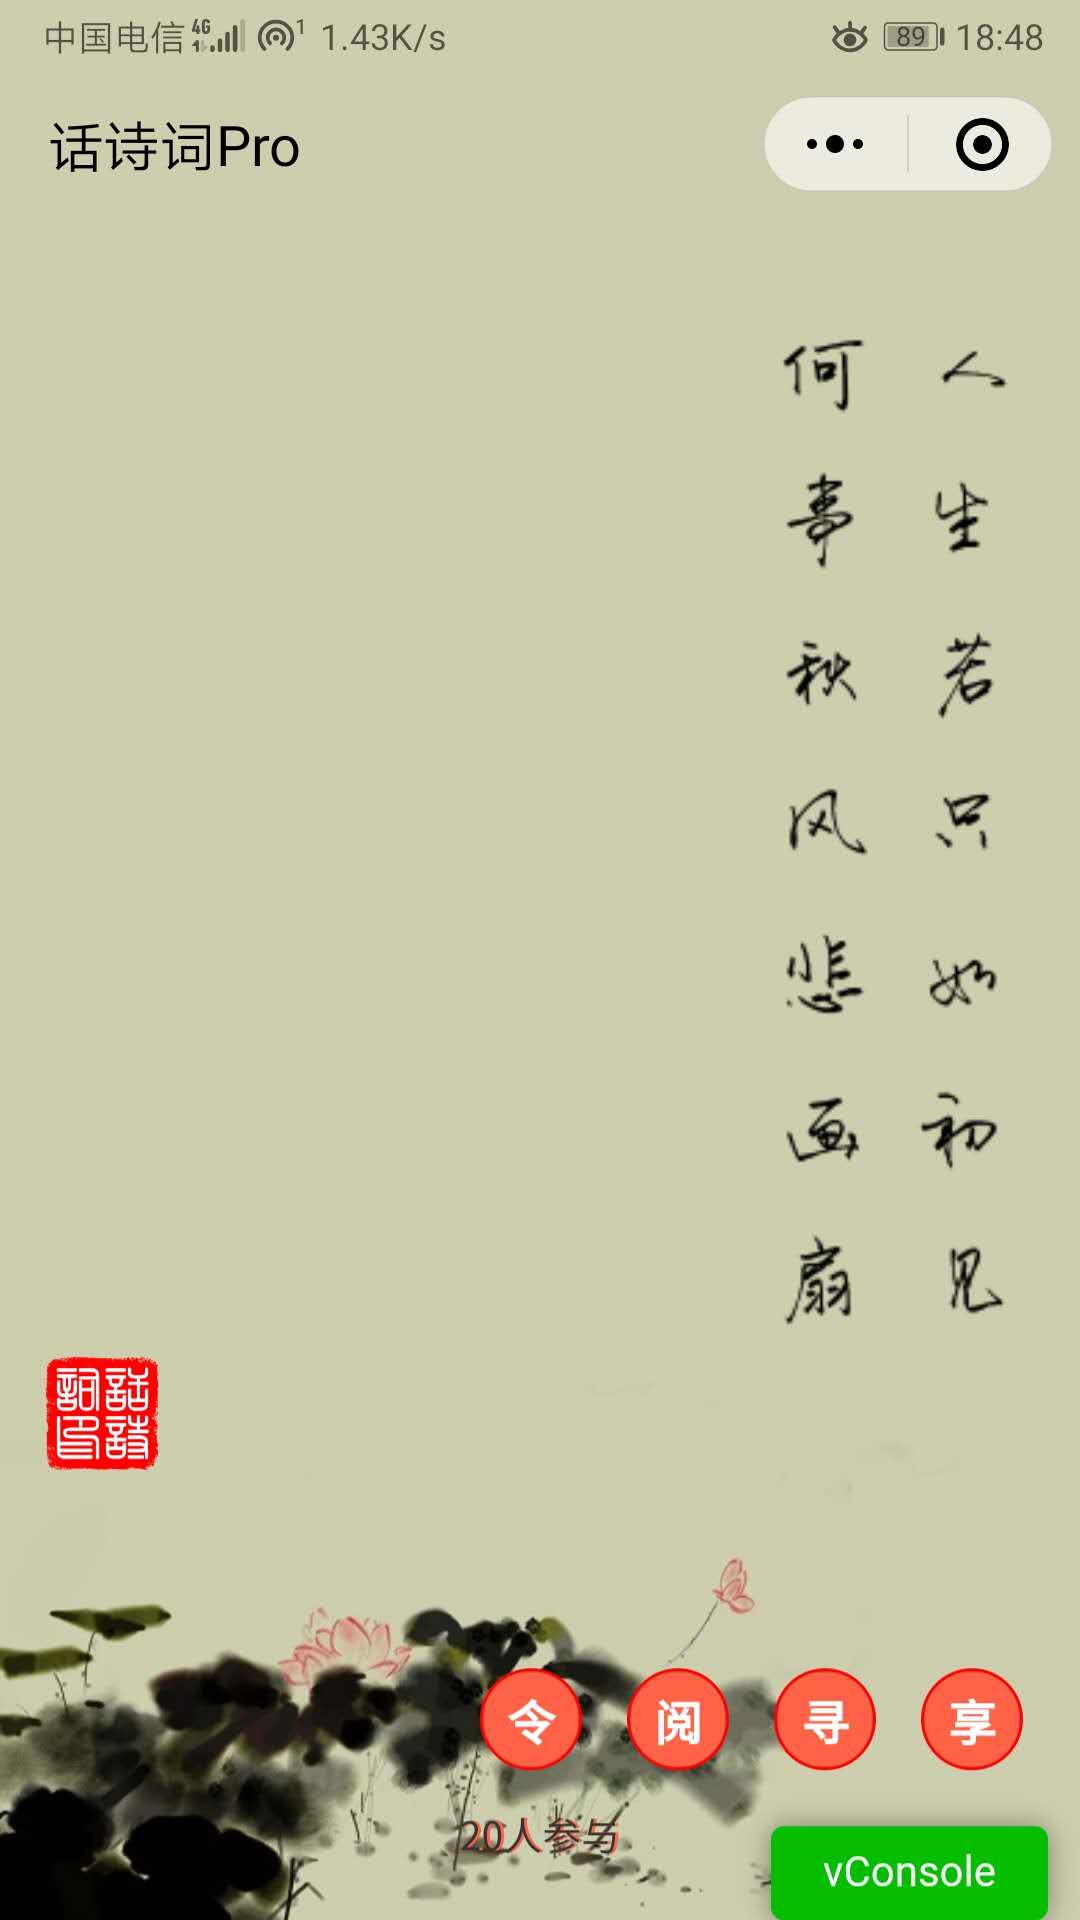 中国电信 4G 1 1.43K/s 89 18:48
话诗词Pro
人生若只如初见
何事秋风悲画扇
話詩詞印
令 阅 寻 享
20人参与
vConsole